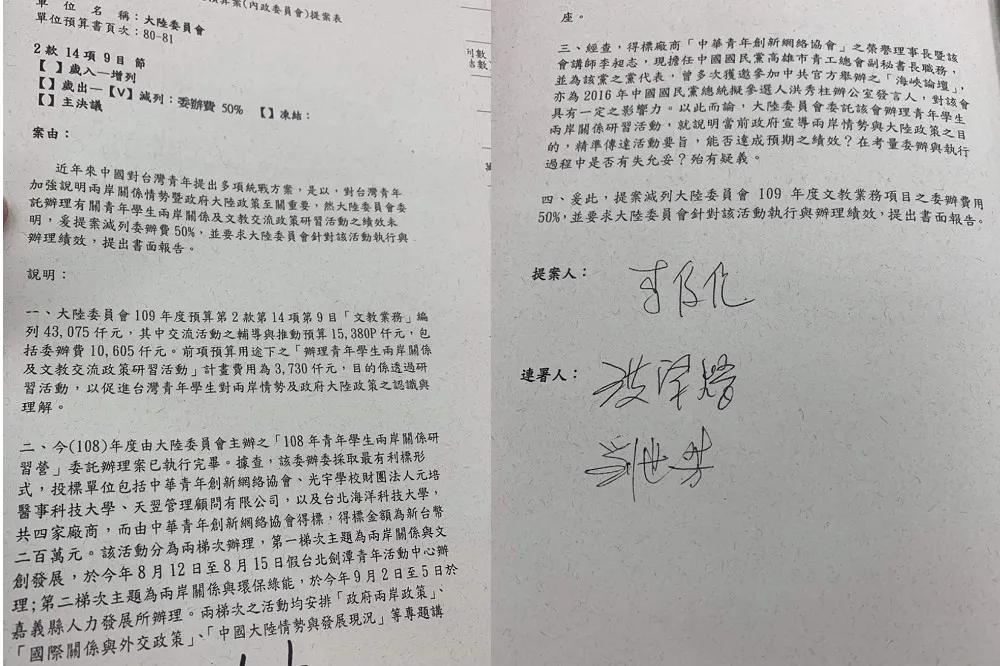 預算案(內政委員會)提案表
單 位 名 稱：大陸委員會
單位預算書頁次：80-81
2 款 14 項 9 目 節
【 】歲入—增列
【 】歲出—【V】減列：委辦費 50% 【 】凍結：
【 】主決議
案由：
近年來中國對台灣青年提出多項統戰方案，是以，對台灣青年
加強說明兩岸關係情勢暨政府大陸政策至關重要，然大陸委員會委
託辦理有關青年學生兩岸關係及文教交流政策研習活動之績效未
明，爰提案減列委辦費50%，並要求大陸委員會針對該活動執行與
辦理績效，提出書面報告。
說明：
一、大陸委員會 109 年度預算第 2 款第 14 項第 9 目「文教業務」編
列 43,075 仟元，其中交流活動之輔導與推動預算 15,380P 仟元，包
括委辦費 10,605 仟元。前項預算用途下之「辦理青年學生兩岸關係
及文教交流政策研習活動」計畫費用為 3,730 仟元，目的係透過研
習活動，以促進台灣青年學生對兩岸情勢及政府大陸政策之認識與
理解。
二、今(108)年度由大陸委員會主辦之「108 年青年學生兩岸關係研
習營」委託辦理案已執行完畢。據查，該委辦委採取最有利標形
式，投標單位包括中華青年創新網絡協會、光宇學校財團法人元培
醫事科技大學、天翌管理顧問有限公司，以及台北海洋科技大學，
共四家廠商，而由中華青年創新網絡協會得標，得標金額為新台幣
二百萬元。該活動分為兩梯次辦理，第一梯次主題為兩岸關係與文
創發展，於今年 8 月 12 日至 8 月 15 日假台北劍潭青年活動中心辦
理；第二梯次主題為兩岸關係與環保綠能，於今年 9 月 2 日至 5 日於
嘉義縣人力發展所辦理。兩梯次之活動均安排「政府兩岸政策」、
「國際關係與外交政策」、「中國大陸情勢與發展現況」等專題講
座。
三、經查，得標廠商「中華青年創新網絡協會」之榮譽理事長暨該
會講師李昶志，現擔任中國國民黨高雄市青工總會副秘書長職務，
並為該黨之黨代表，曾多次獲邀參加中共官方舉辦之「海峽論壇」，
亦為 2016 年中國國民黨總統擬參選人洪秀柱辦公室發言人，對該會
具有一定之影響力。以此而論，大陸委員會委託該會辦理青年學生
兩岸關係研習活動，就說明當前政府宣導兩岸情勢與大陸政策之目
的，精準傳達活動要旨，能否達成預期之績效？在考量委辦與執行
過程中是否有失允妥？殆有疑義。
四、爰此，提案減列大陸委員會 109 年度文教業務項目之委辦費用
50%，並要求大陸委員會針對該活動執行與辦理績效，提出書面報告。
提案人：
連署人：
劉世芳